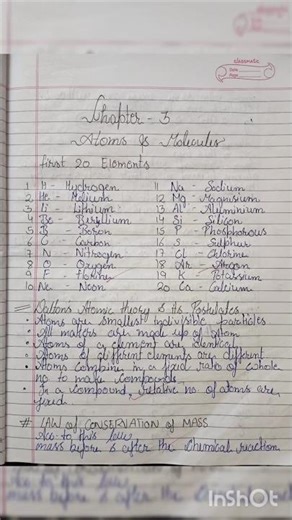 classmate
Date
Page
Chapter - 3
Atoms & Molecules
first 20 Elements
1 H - Hydrogen 11 Na - Sodium
2 He - Helium 12 Mg - Magnisium
3 Li - Lithium 13 Al - Aluminium
4 Be - Berillium 14 Si - Silicon
5 B - Boron 15 P - Phosphorous
6 C - Carbon 16 S - Sulphur
7 N - Nitrogen 17 Cl - Chlorine
8 O - Oxygen 18 Ar - Aragon
9 F - Florine 19 K - Potassium
10 Ne - Neon 20 Ca - Calcium
Daltons Atomic theory & its Postulates
• Atoms are smallest indivisible particles
• All matters are made up of atom
• Atoms of a element are identical
• Atoms of different elements are different
• Atoms combine in a fixed ratio of whole
no to make compounds
• In a compound, relative no of atoms are
fixed
# LAW OF CONSERVATION OF MASS
Acc to this law,
mass before & after the chemical reaction
Acc to this law
mass before & after the
InShot